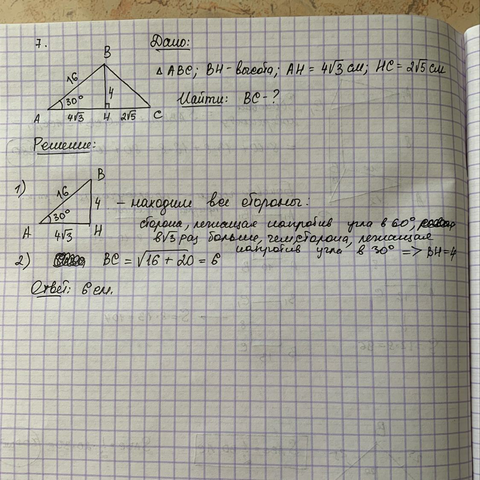 7.
Дано:
B
△ ABC; BH - высота; AH = 4√3 см; HC = 2√5 см
16
4
30°
A
4√3
H
2√5
C
Найти: BC - ?
Решение:
1)
B
16
4
30°
A
4√3
H
– находим все стороны:
сторона, лежащая напротив угла в 60°,
в √3 раз больше, чем сторона, лежащая
напротив угла в 30° => BH = 4
2) BC = √16 + 20 = 6
Ответ: 6 см.